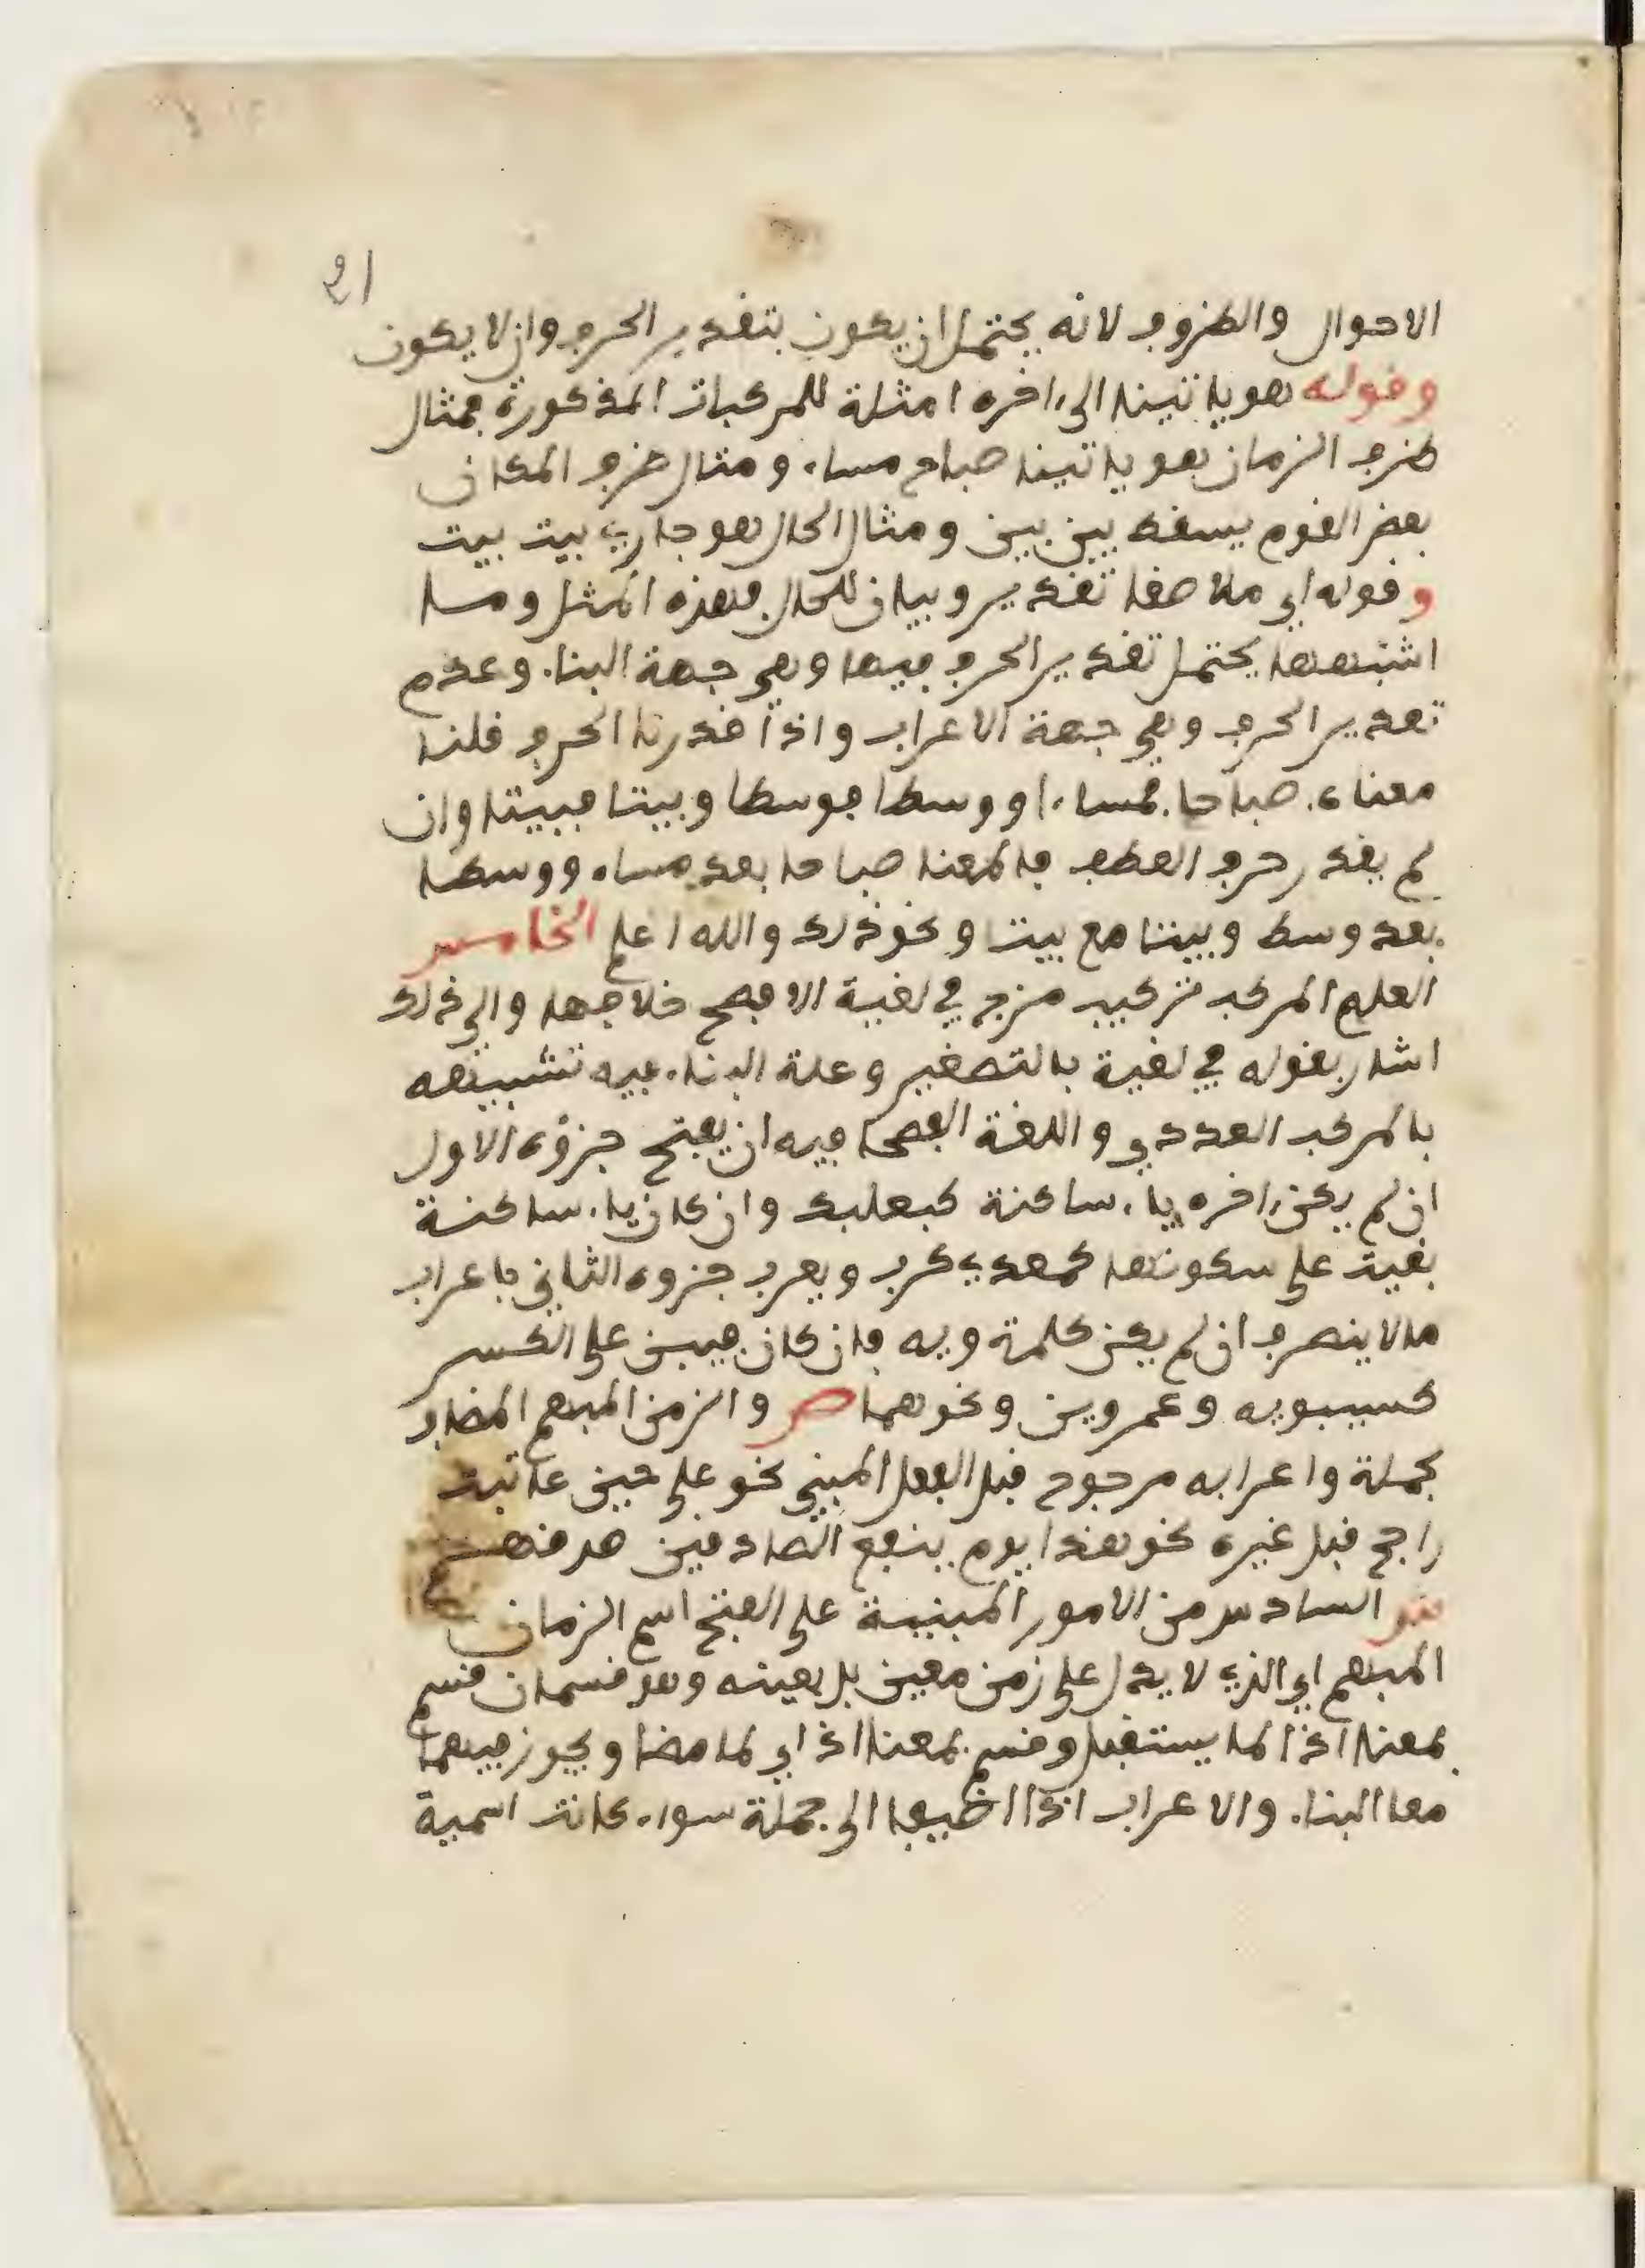 21
الاحوال والظروف لانه يحتمل ان يكون بتقدير الحرف وان لا يكون
وقوله هو ياتينا الى اخره امثلة للمركبات المذكورة فمثال
ظرف الزمان هو ياتينا صباح مساء ومثال ظرف المكان
بعض القوم يسقط بين بين ومثال الحال هو جاري بيت بيت
وقوله اي ملاصقا تقدير وبيان للحال فهذه المثل وما
اشبهها يحتمل تقدير الحرف فيها وهي جهة البناء وعدم
تقدير الحرف وهي جهة الاعراب واذا قدرنا الحرف قلنا
معناه صباحا فمساء او وسطا فوسطا وبيتا فبيتا وان
لم يقدر حرف العطف فالمعنا صباحا بعد مساء ووسطا
بعد وسط وبيتا مع بيت ونحو ذلك والله اعلم الخامس
العلم المركب تركيب مزج في لغية الافصح خلافها والى ذلك
اشار بقوله في لغية بالتصغير وعلة البناء فيه تشبيهه
بالمركب العددي واللغة الفصحا فيه ان يفتح جزؤه الاول
ان لم يكن اخره ياء ساكنة كبعلبك وان كان ياء ساكنة
بقيت على سكونها كمعدي كرب ويعرب جزوه الثاني باعراب
مالا ينصرف ان لم يكن كلمة ويه فان كان فيبن على الكسر
كسيبويه وعمرويه ونحوهما ص والزمن المبهم المضاف
لجملة واعرابه مرجوح قبل الفعل المبني نحو على حين عاتبت
راجح قبل غيره نحو هذا يوم ينفع الصادقين صدقهم
ش السادس من الامور المبنية على الفتح اسم الزمان
المبهم اي الذي لا يدل على زمن معين بل بعينه وهو قسمان قسم
بمعنا اذا لما يستقبل وقسم بمعنا اذ اي لما مضا ويجوز فيهما
معا البناء والاعراب اذا اضيفا الى جملة سواء كانت اسمية